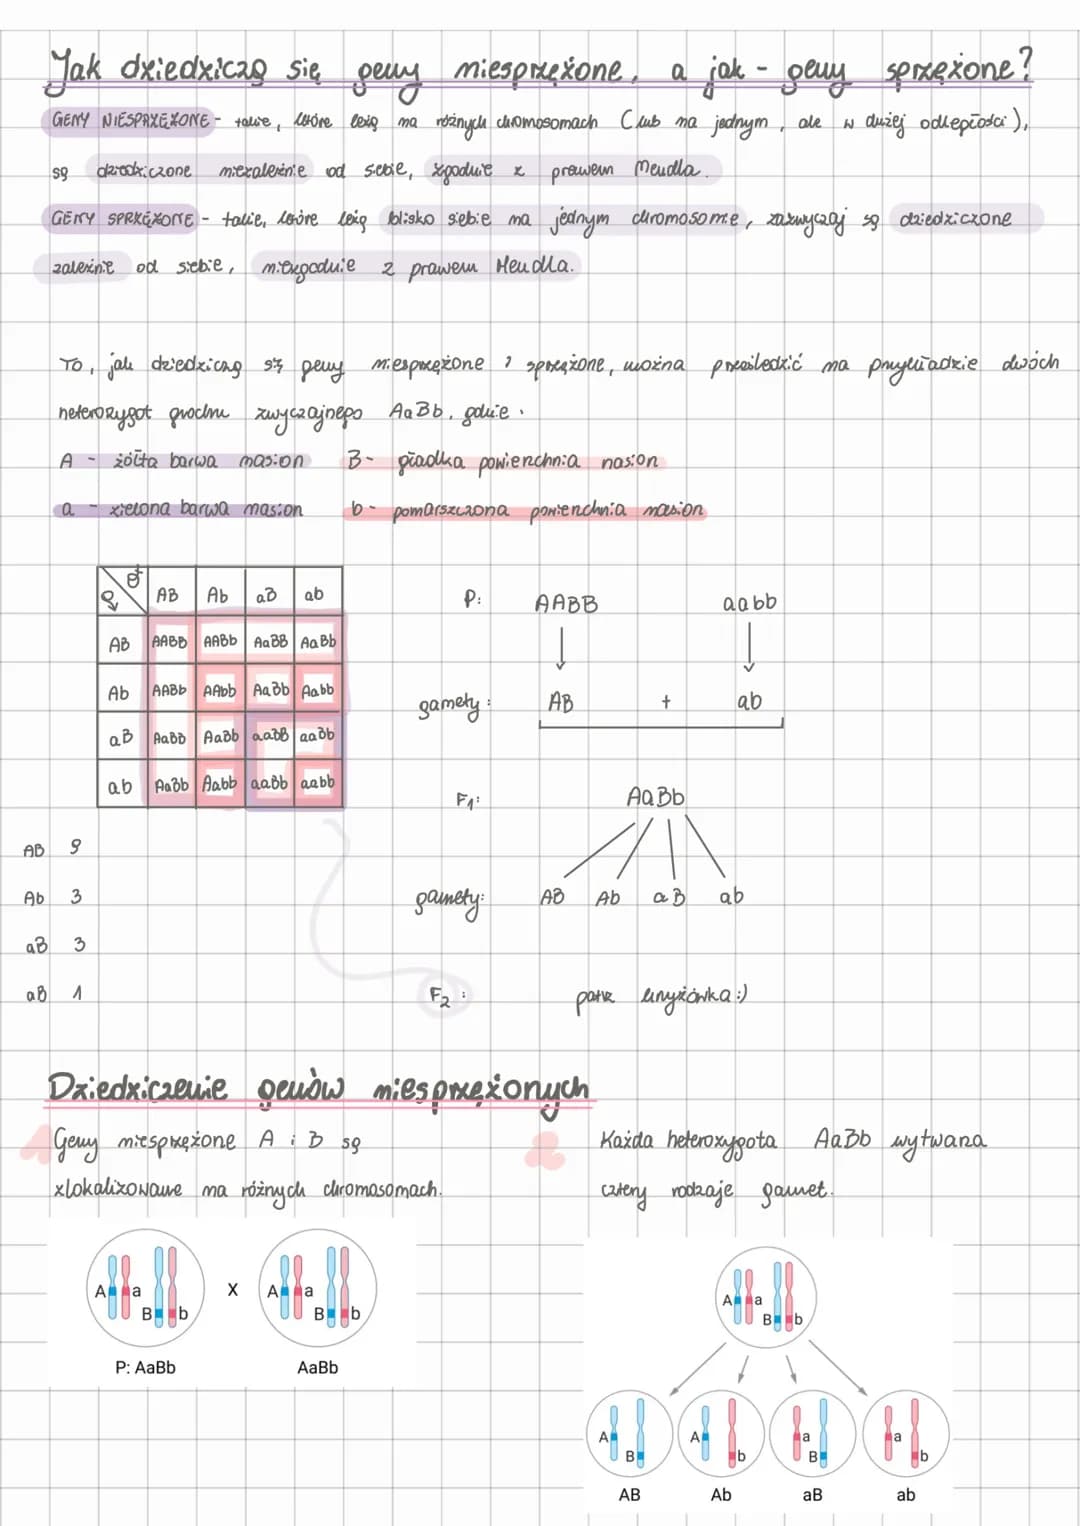 Jak dziedziczą się geny niesprzężone, a jak - geny sprzężone?
GENY NIESPRZĘŻONE - takie, które leżą na różnych chromosomach (lub na jednym, ale w dużej odległości),
są dziedziczone niezależnie od siebie, zgodnie z prawem Mendla.
GENY SPRZĘŻONE - takie, które leżą blisko siebie na jednym chromosomie, zazwyczaj są dziedziczone
zależnie od siebie, niezgodnie z prawem Mendla.
To, jak dziedziczą się geny niesprzężone i sprzężone, można prześledzić na przykładzie dwóch
heterozygot grochu zwyczajnego AaBb, gdzie:
A - żółta barwa nasion B - gładka powierzchnia nasion
a - zielona barwa nasion b - pomarszczona powierzchnia nasion
♀ ♂ AB Ab aB ab
AB AABB AABb AaBB AaBb
Ab AABb AAbb AaBb Aabb
aB AaBB AaBb aaBB aaBb
ab AaBb Aabb aaBb aabb
P: AABB aabb
gamety: AB + ab
F1: AaBb
gamety: AB Ab aB ab
F2: patrz krzyżówka :)
AB 9
Ab 3
aB 3
aB 1
Dziedziczenie genów niesprzężonych
1 Geny niesprzężone A i B są
zlokalizowane na różnych chromosomach.
A a B b X A a B b
P: AaBb AaBb
2 Każda heterozygota AaBb wytwarza
cztery rodzaje gamet.
A a B b
A B A b a B a b
AB Ab aB ab